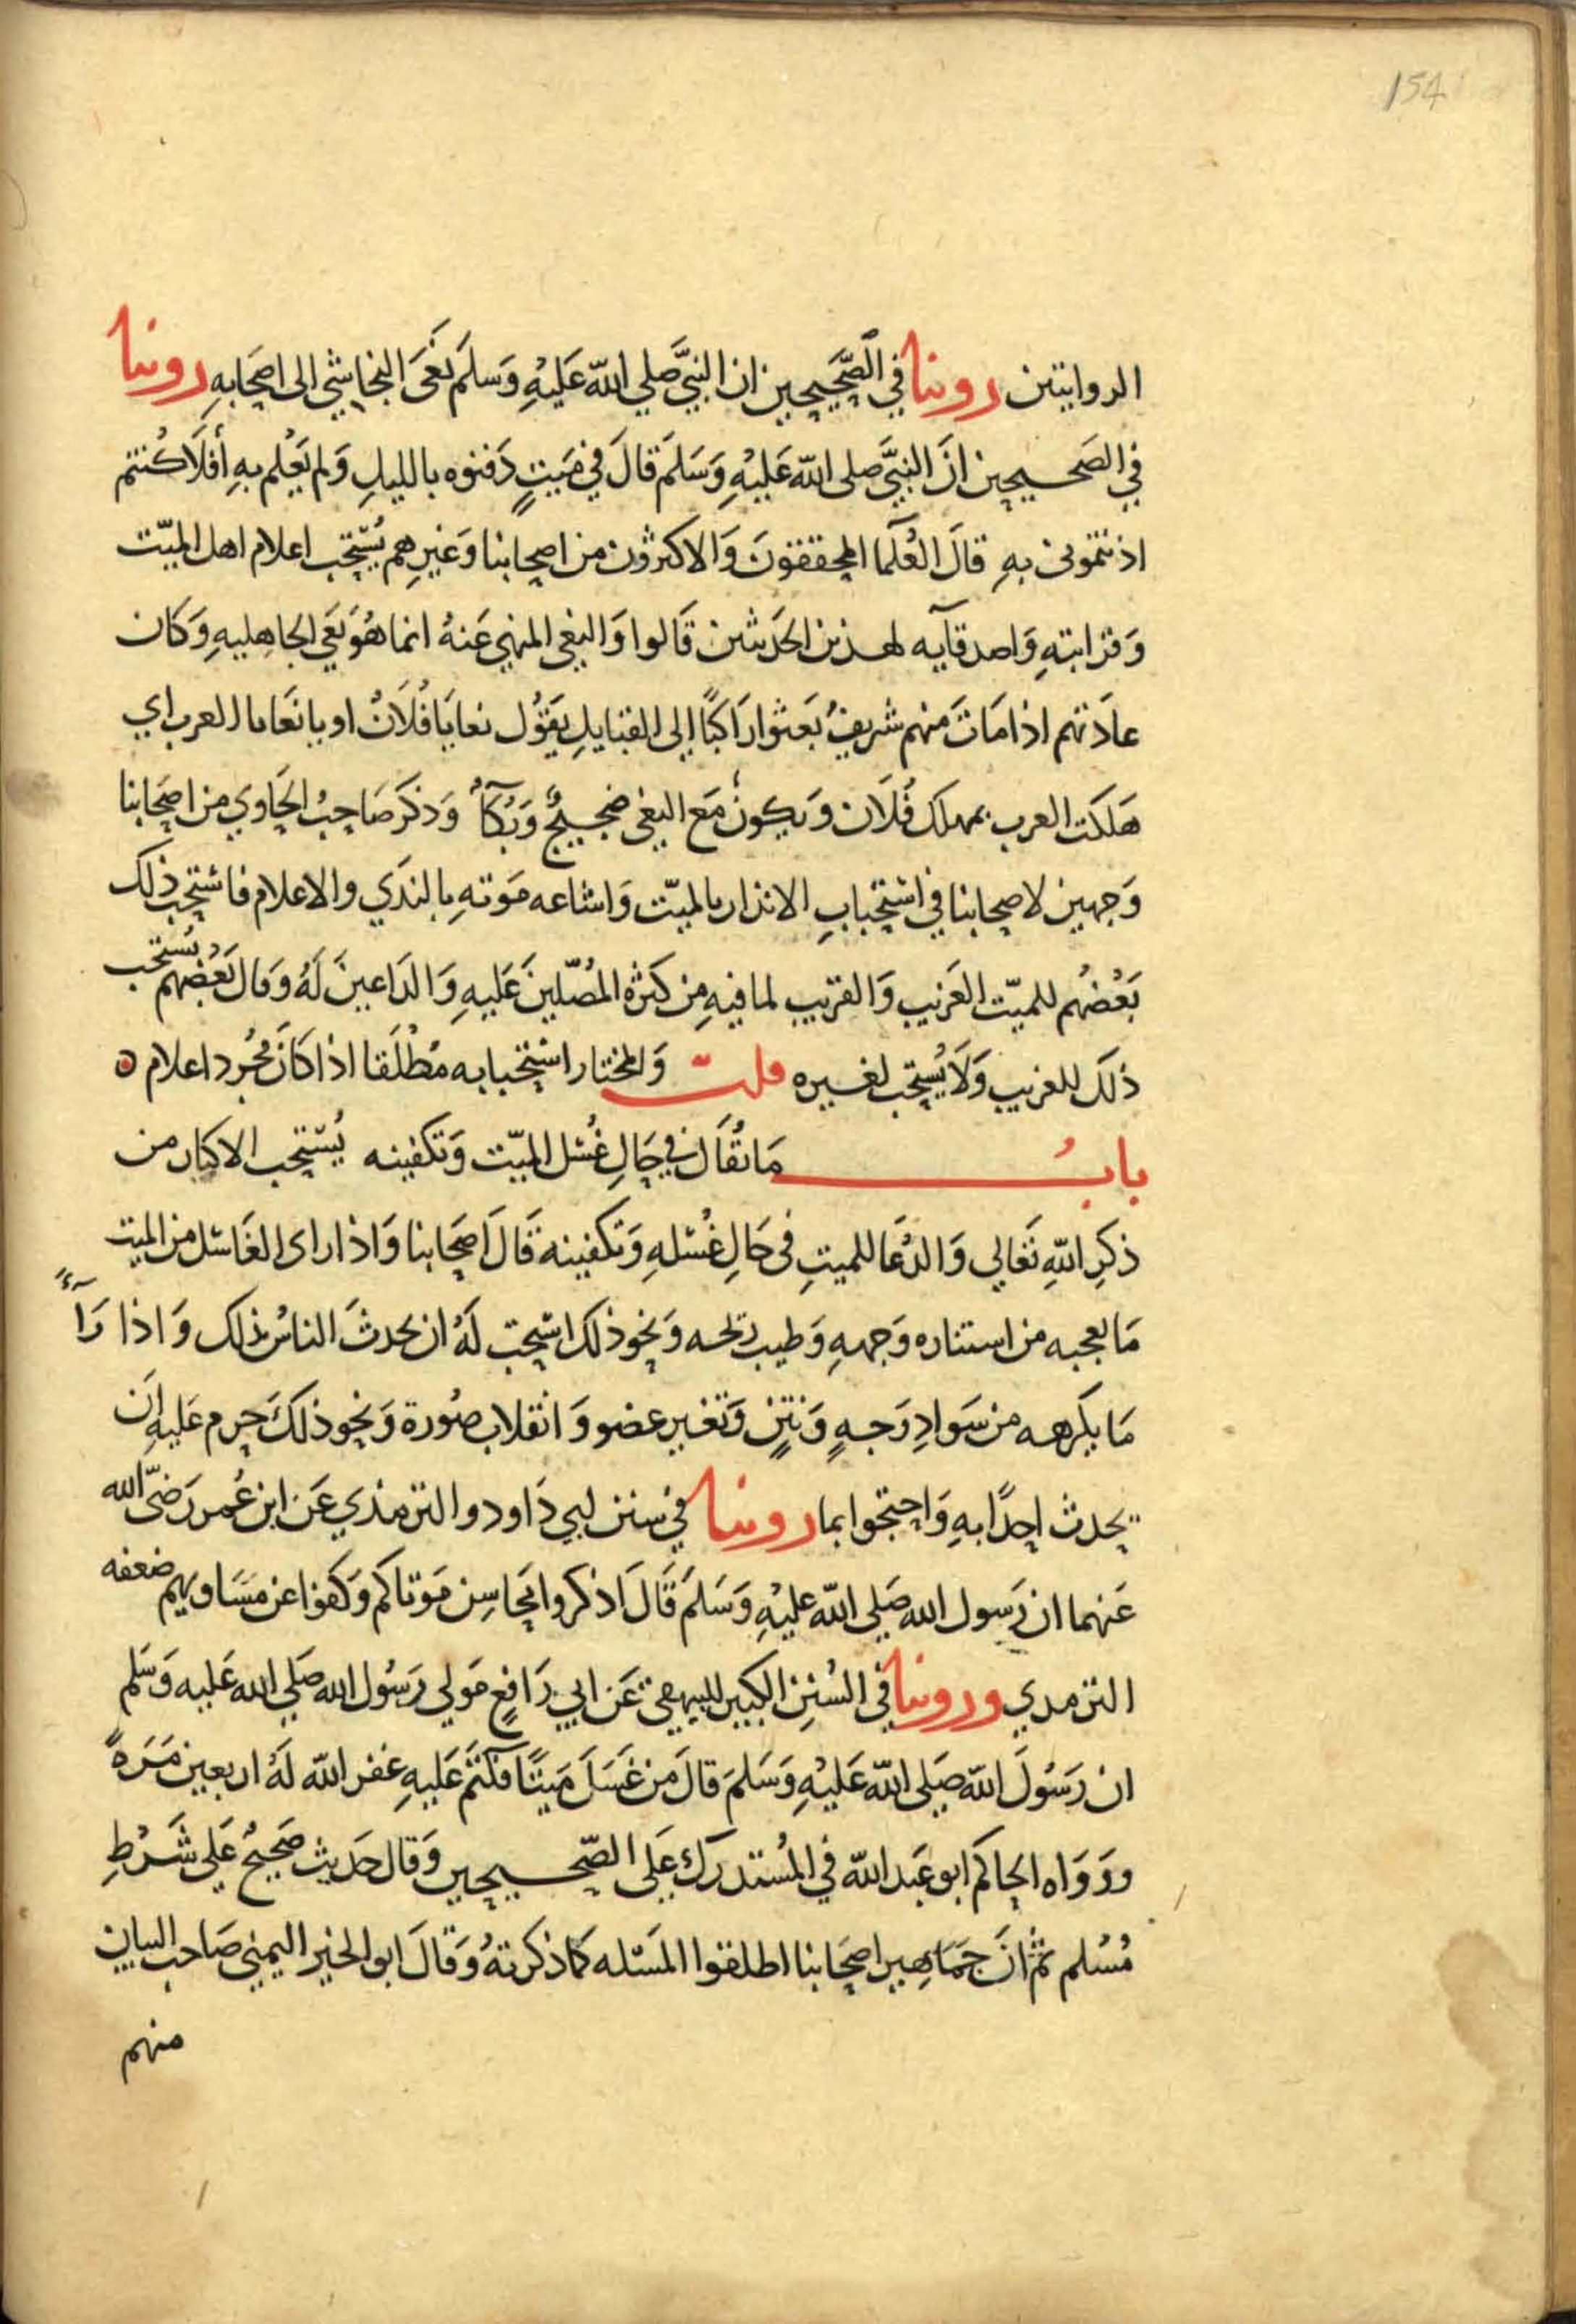 154
الروايتين روينا في الصَّحِيحين ان النبيَّ صَلي اللّه عَليْهِ وَسَلمَ نَعَى النجاشي الى اصحَابهِ روينا
في الصَحيحين انَ النبيَّ صلى اللّه عَليْهِ وَسَلَمَ قالَ في مَيتٍ دَفنوه بالليلِ وَلم يَعْلم بهِ أفلَا كُنتم
اذنتموني بهِ قالَ العُلَما المحققونَ وَالاكثرون من اصحابنا وَغيرِهم يُستحب اعلام اهل الميّت
وَقرابتهِ وَاصدقآيه لهذين الحَديثين قَالوا وَالنعي المنهي عَنهُ انما هُوَ نَعي الجاهِليهِ وَكَان
عادَتهم اذا مَاتَ منهم شريفٌ بَعثوا رَاكبًا إلى القبايلِ يَقوُل نعايَا فُلَانْ او يا نَعَايا العرب اي
هَلكَت العرب بمهلك فُلَان وَيكونُ مَع النعي ضجيجٌ وَبُكآءٌ وَذكَرَ صَاحِبُ الحَاوي من اصحَابنا
وَجهين لاصحابنا في استحبابِ الانذار بالميّت وَاشاعه مَوتهِ بالندَي والاعلام فاستحب ذلك
بَعْضهُم للميّت الغَريب وَالقريب لما فيهِ من كَثرة المُصَلّينَ عَليهِ وَالدَاعينَ لَهُ وَقال بَعْضُهم يُستحب
ذلك للغريب وَلَا يُستحب لغيره قلت وَالمختار استحبابه مُطْلَقا اذا كَانَ مُجُرد اعلام
بابُ مَا يُقَال في حَالِ غُسْل الميّت وَتكفينه يُستحب الاكثار من
ذكرِ اللّهِ تَعَالي وَالدُعَا للميتِ في حَالِ غُسْلهِ وَتكفينه قَالَ اصحَابنا وَاذا راى الغَاسل من الميت
مَا يعجبه من استناره وَجههِ وَطيب ريحه وَنحو ذلك استحبّ لَهُ ان يحدثَ الناسُ بذلك وَاذا رَاءً
مَا يكرهه من سَوادِ وَجهٍ وَنتنٍ وَتغير عضو وَانقلاب صُورة وَنحو ذلكَ حرم عَليهِ اَن
يحدث احدًا بهِ وَاحتجوا بما روينا في سنن ابي دَاود والترمذي عَن ابن عُمر رَضيَ الله
عَنهما ان رَسول الله صَلي اللّه عليْهِ وَسَلمَ قَالَ اذكروا مَحاسِن مَوتاكم وَكفوا عن مسَاويهم ضعفه
الترمدي وروينا في السُنن الكبير للبيهقي عَن ابي رَافعٍ مَولي رَسُول الله صَلي الله عَليه وَسَلم
ان رَسُولَ اللّه صَلى اللّه عَليْهِ وَسَلمَ قالَ من غَسَلَ مَيتًا فكَتَمَ عَليهِ غفر اللّه لَهُ اربعين مَرَةً
وروَاه الحاكم ابو عَبد اللّه في المُستدرَك عَلى الصّحيحين وَقال حَديث صَحيحٌ عَلي شَرْطِ
مُسْلم ثم انَ جَمَاهِير اصحَابنا اطلقوا المَسْله كما ذكرتهُ وَقالَ ابو الخير اليمني صَاحب البيان
منهم